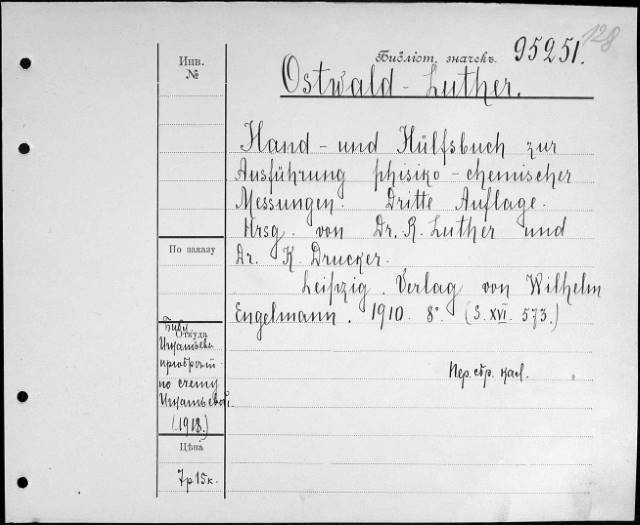 128
Библіот. значекъ. 95251.
Инв.
№
Ostwald - Luther.
Hand - und Hülfsbuch zur
Ausführung phisiko - chemischer
Messungen. Dritte Auflage.
Hrsg. von Dr. R. Luther und
По заказу
Dr. K. Drucker.
Leipzig. Verlag von Wilhelm
Engelmann. 1910. 8°. (S. XVI. 573.)
Библ.
Откуда
Игнатьева
по счету
Игнатьевой.
(1918.)
Пер. сбр. кал.
Цѣна
7р15к.